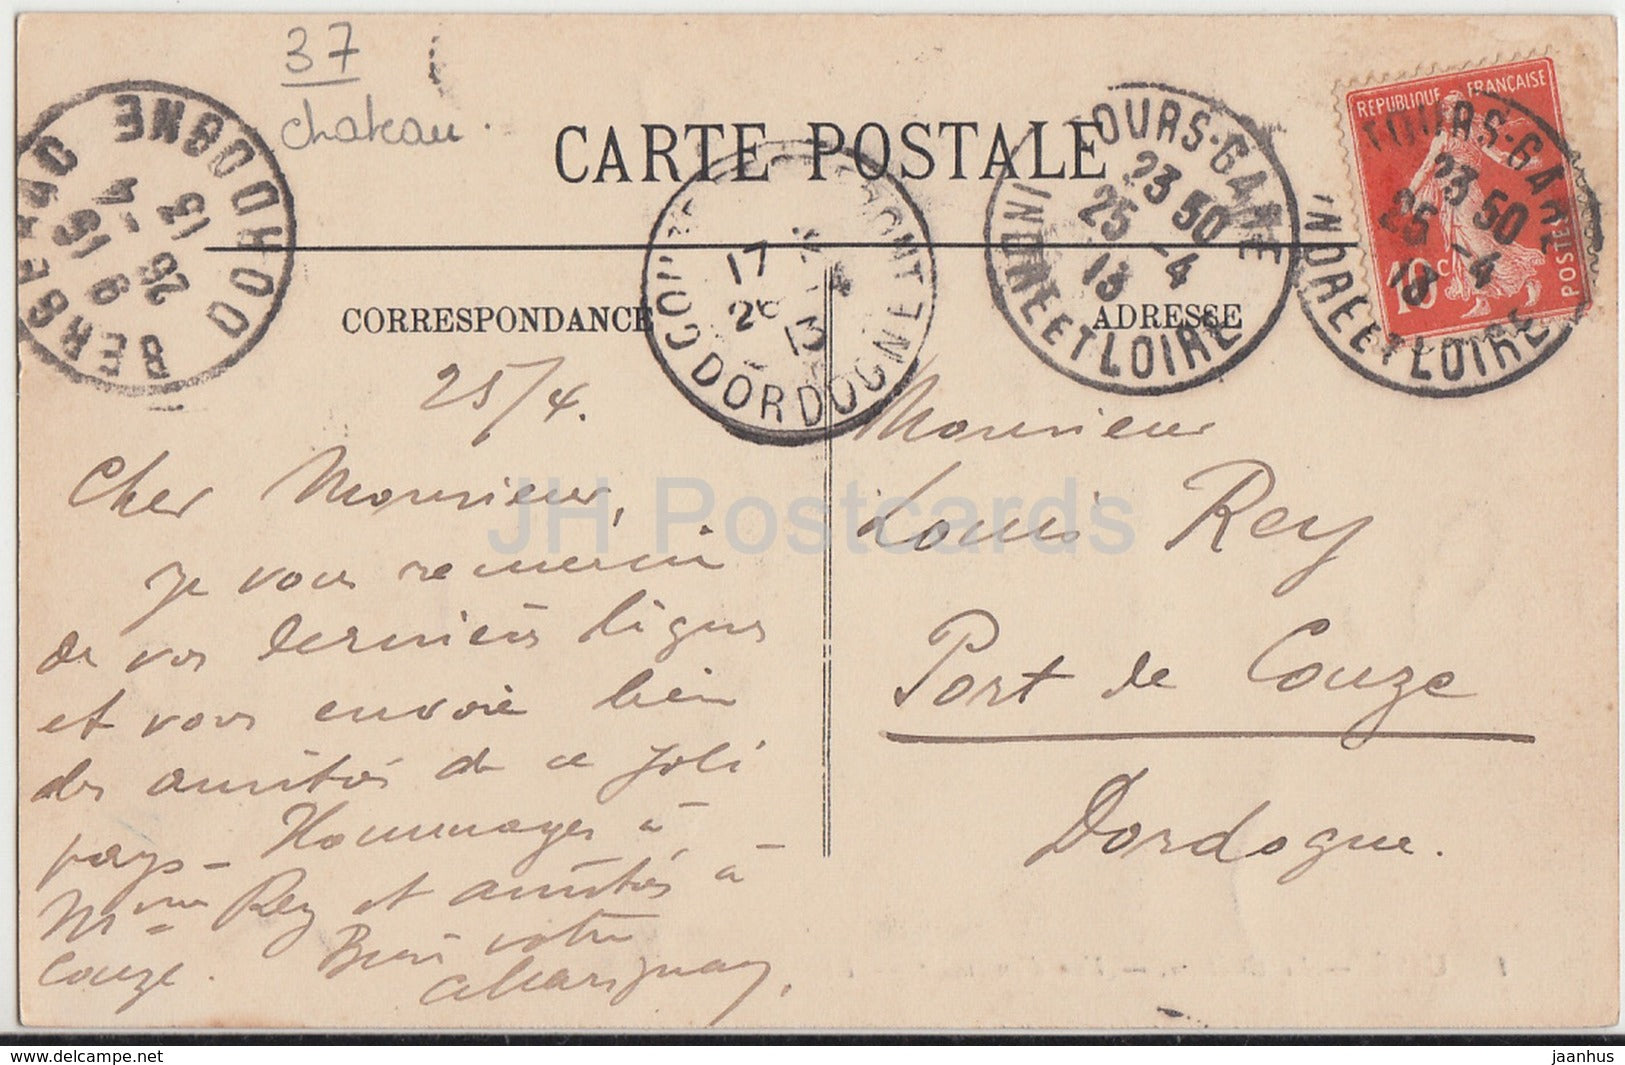 37
chateau.
CARTE POSTALE
CORRESPONDANCE
ADRESSE
BERGERAC
DORDOGNE
9 15
25 -4
13
17
26 4
13
DORDOGNE
TOURS-GARE
23 50
25 -4
13
INDRE ET LOIRE
TOURS-GARE
23 50
25 -4
13
INDRE ET LOIRE
REPUBLIQUE FRANÇAISE
10 c
POSTES
25/4.
Cher Monsieur,
je vous remercie
de vos dernières lignes
et vous envoie bien
des amitiés de ce joli
pays - Hommages à
Mme Rey et amitiés à
Couze. Bien votre
Monsieur
Louis Rey
Port de Couze
Dordogne.
JH Postcards
www.delcampe.net
jaanhus